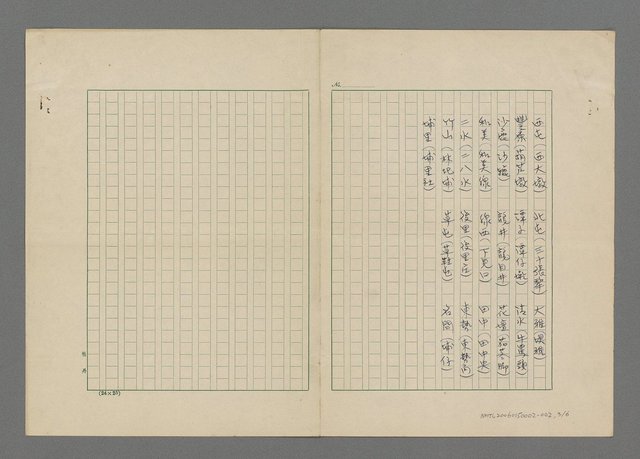 No.
西屯(西大墩) 北屯(三十張犁) 大雅(壩雅)
豐原(葫芦墩) 潭子(潭仔墘) 清水(牛罵頭)
沙鹿(沙轆) 龍井(龍目井) 花壇(茄苳腳)
和美(和美線) 線西(下見口) 田中(田中央)
二水(二八水) 後里(後里庄) 東勢(東勢角)
竹山(林圯埔) 草屯(草鞋屯) 名間(埔仔)
埔里(埔里社)
(24×25)
NMTL20060150002-002_3/6